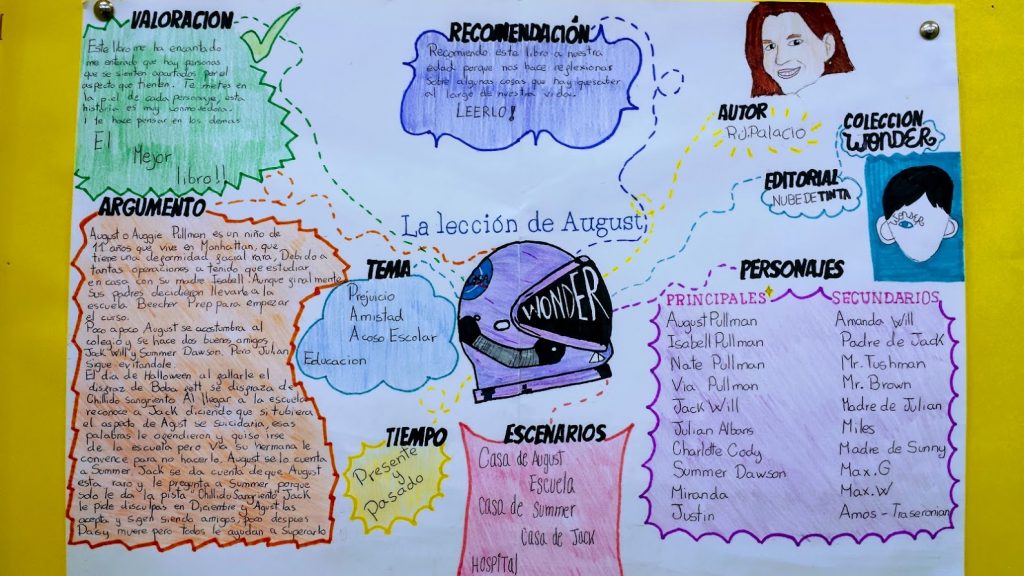 VALORACION
Este libro me ha encantado
me enterado que hay personas
que se sienten apartados por el
aspecto que tienen. Te metes en
la piel de cada personaje, esta
historia es muy conmovedora.
I te hace pensar en los demas
El
Mejor
libro!!
RECOMENDACIÓN
Recomiendo este libro a nuestra
edad porque nos hace reflexionar
sobre algunas cosas que hay que saber
al largo de nuestra vida.
LEERLO!
AUTOR
R.J.Palacio
COLECCION
WONDER
EDITORIAL
NUBE DE TINTA
WONDER
La lección de August
NASA
WONDER
ARGUMENTO
August o Auggie Pullman es un niño de
11 años que vive en Manhattan, que
tiene una deformidad facial rara, Debido a
tantas operaciones a tenido que estudiar
en casa con su madre Isabell. Aunque finalmente
Sus padres decidieron llevarle a la
escuela Beecher Prep para empezar
el curso.
Poco a poco August se acostumbra al
colegio y se hace dos buenos amigos
Jack Will y Summer Dawson. Pero Julian
sigue evitandole.
El día de Halloween al fallarle el
disfraz de Boba fett se disfraza de
Chillido sangriento. Al llegar a la escuela
reconoce a Jack diciendo que si tubiera
el aspecto de Agust se suicidaria, esas
palabras le ofendieron y quiso irse
de la escuela pero Via su hermana le
convence para no hacerlo. August se lo cuenta
a Sommer. Jack se da cuenta de que August
esta raro y le pregunta a Summer porque
solo le da la pista "Chillido Sangriento" Jack
le pide disculpas en Diciembre y Agust las
acepta y sigen siendo amigos, poco despues
Daisy muere pero todos le ayudan a Superarlo
TEMA
Prejuicio
Amistad
Acoso Escolar
Educacion
TIEMPO
Presente
y
Pasado
ESCENARIOS
Casa de August
Escuela
Casa de Summer
Casa de Jack
HOSPITAL
PERSONAJES
PRINCIPALES
August Pullman
Isabell Pullman
Nate Pullman
Via Pullman
Jack Will
Julian Albans
Charlotte Cody
Summer Dawson
Miranda
Justin
SECUNDARIOS
Amanda Will
Padre de Jack
Mr. Tushman
Mr. Brown
Madre de Julian
Miles
Madre de Sunny
Max.G
Max.W
Amos - Traseronian